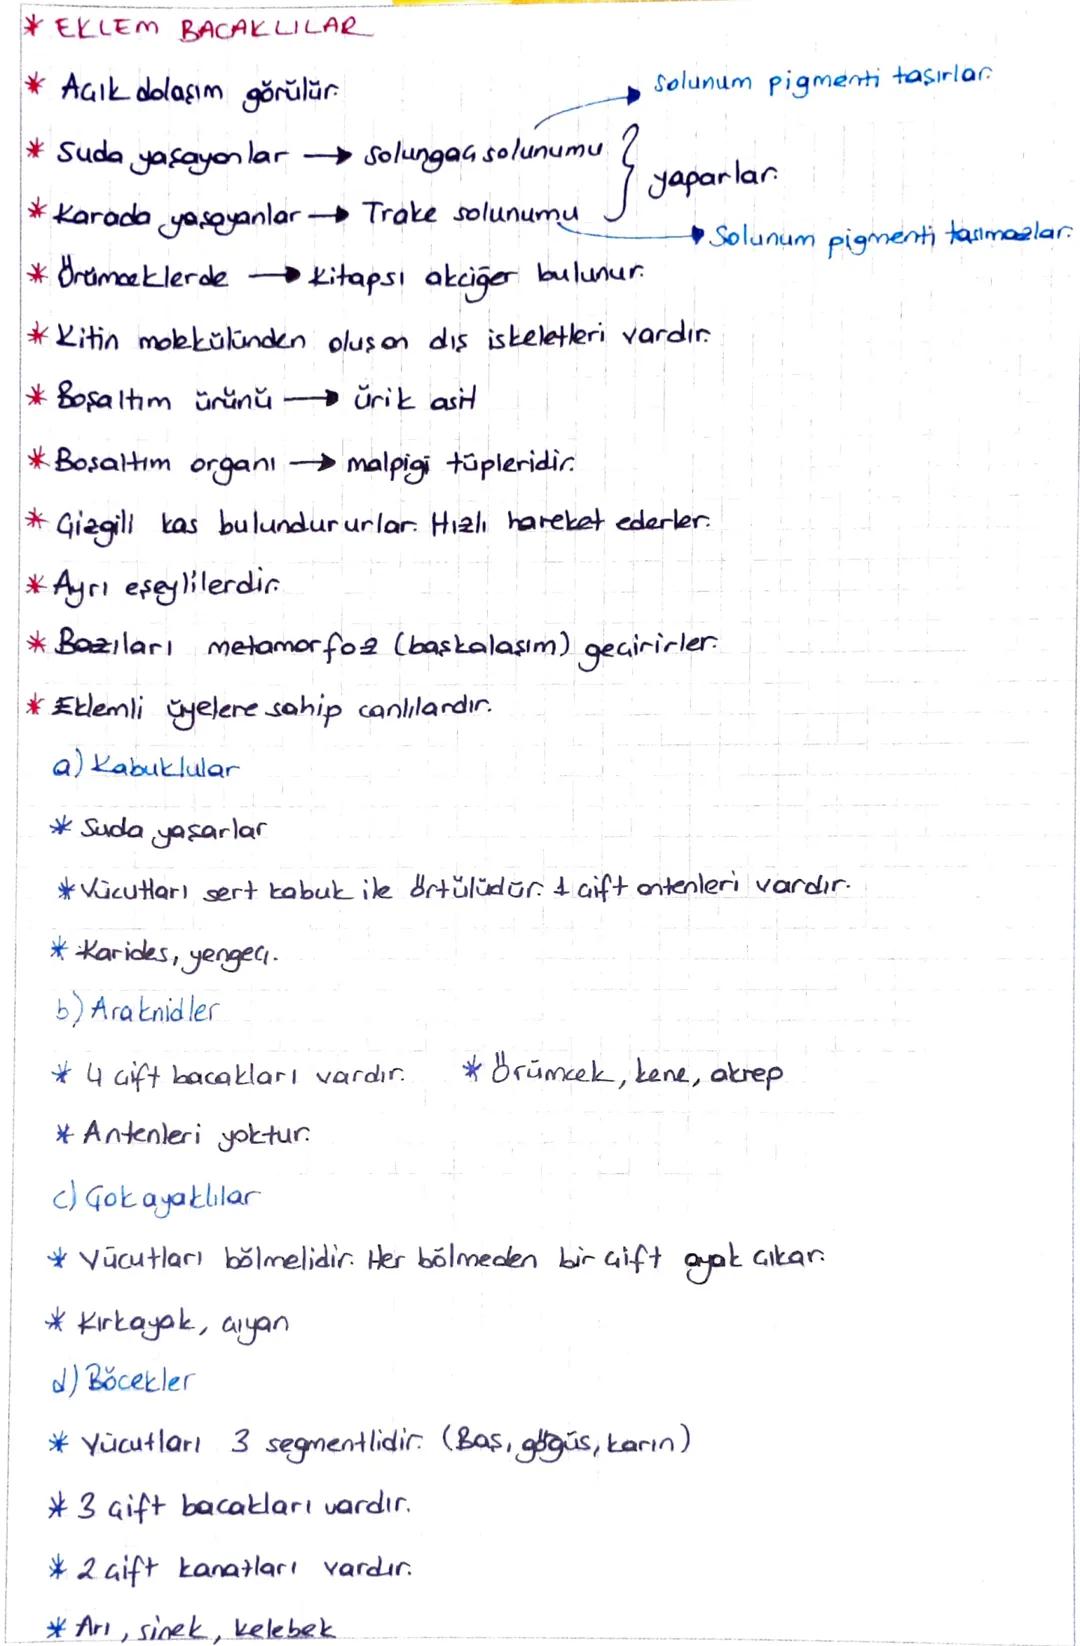 * EKLEM BACAKLILAR
* Açık dolaşım görülür.
solunum pigmenti taşırlar.
* Suda yaşayanlar → solungaç solunumu
yaparlar.
* Karada yaşayanlar → Trake solunumu
Solunum pigmenti taşımazlar.
* Örümceklerde → kitapsı akciğer bulunur.
* Kitin molekülünden oluşan dış iskeletleri vardır.
* Boşaltım ürünü → ürik asit
* Boşaltım organı → malpigi tüpleridir.
* Çizgili kas bulundururlar. Hızlı hareket ederler.
* Ayrı eşeylilerdir.
* Bazıları metamorfoz (başkalaşım) geçirirler.
* Eklemli üyelere sahip canlılardır.
a) Kabuklular
* Suda yaşarlar
* Vücutları sert kabuk ile örtülüdür. 1 çift antenleri vardır.
* Karides, yengeç.
b) Araknidler
* 4 çift bacakları vardır. * Örümcek, kene, akrep
* Antenleri yoktur.
c) Çok ayaklılar
* Vücutları bölmelidir. Her bölmeden bir çift ayak çıkar.
* Kırkayak, çıyan
d) Böcekler
* Vücutları 3 segmentlidir. (Baş, göğüs, karın)
* 3 çift bacakları vardır.
* 2 çift kanatları vardır.
* Arı, sinek, kelebek